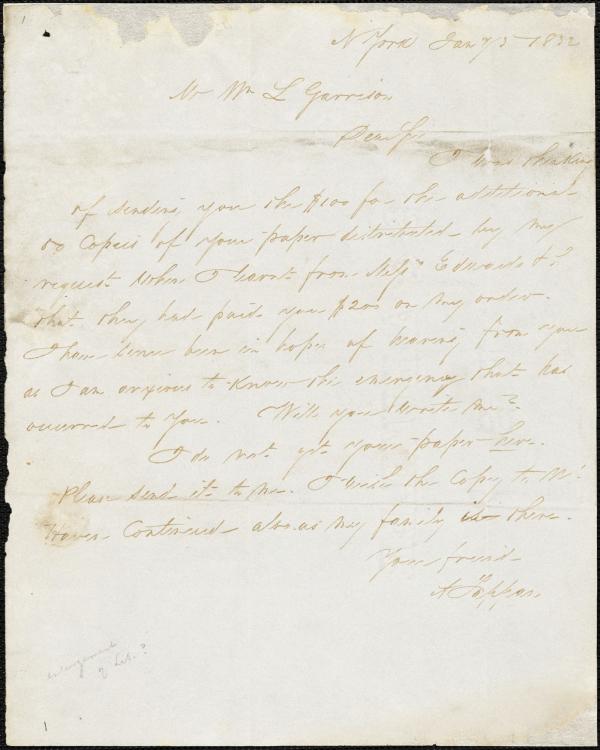 N York Jan'y 5 1832
Mr Wm L Garrison
Dear Sir
I was thinking
of sending you the $100 for the additional
00 Copies of your paper distributed by my
request when I learnt from Messrs Edwards &
that they had paid you $200 on my order.
I have since been in hopes of hearing from you
as I am anxious to know the emergency that has
occurred to you. Will you write me?
I do not get your paper here.
Please send it to me. I wish the Copy to N.
Haven Continued also as my family is there.
Your friend
A Tappan
enlargement
of Lib.?
1
1